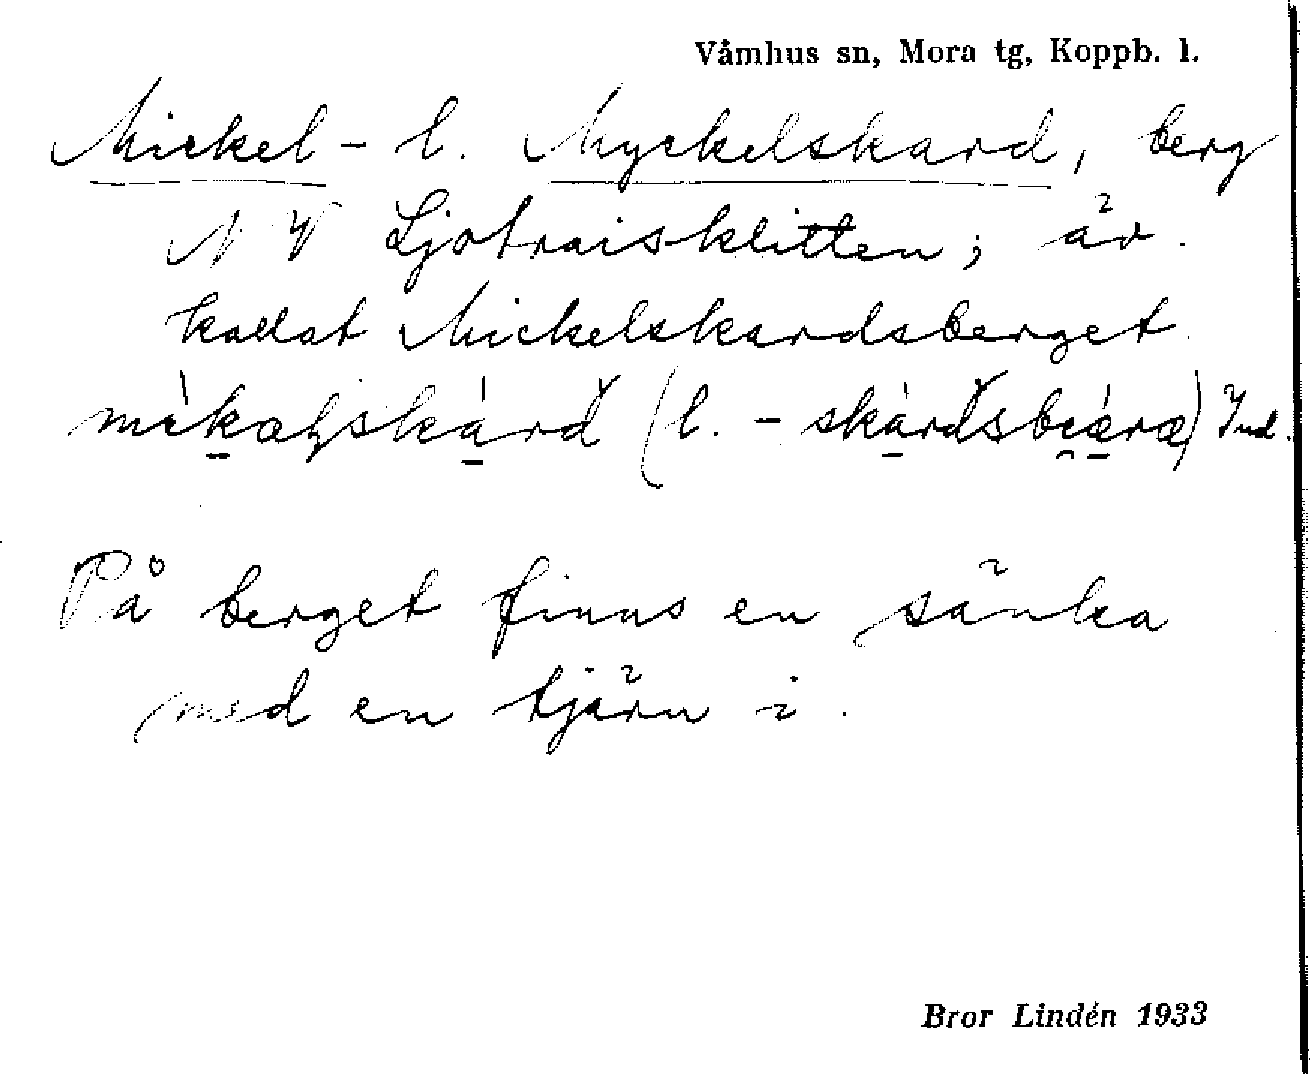 Våmhus sn, Mora tg, Koppb. l.
Mickel- l. Myckelskard, berg
NV Ljotraisklitten; är
kallat Mickelskardsberget
(l. -
På berget finns en sänka
med en tjärn i.
Bror Lindén 1933